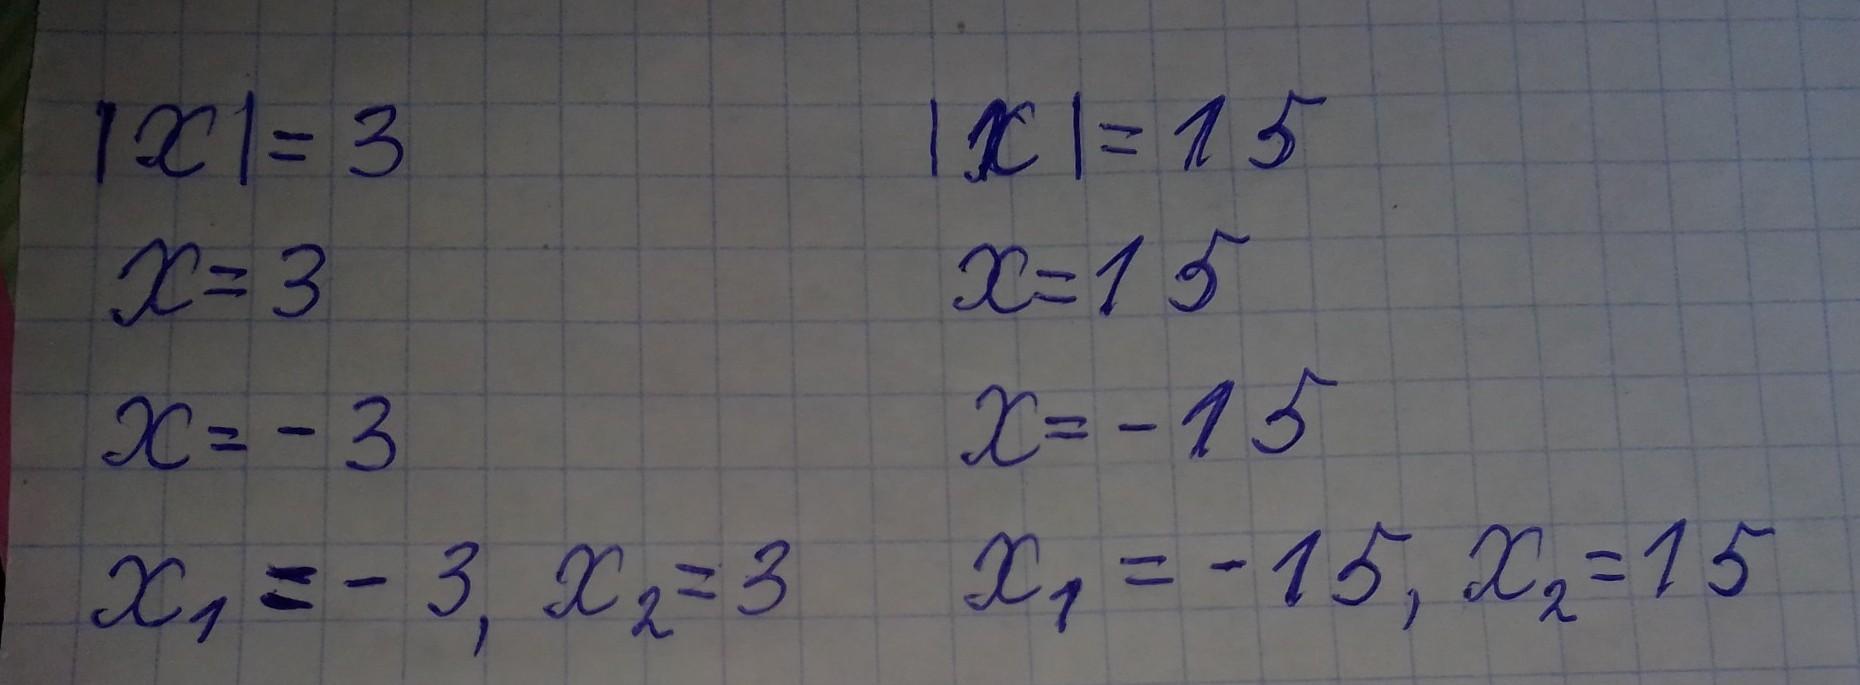 |x| = 3
x = 3
x = - 3
x₁ = - 3, x₂ = 3
|x| = 15
x = 15
x = - 15
x₁ = - 15, x₂ = 15